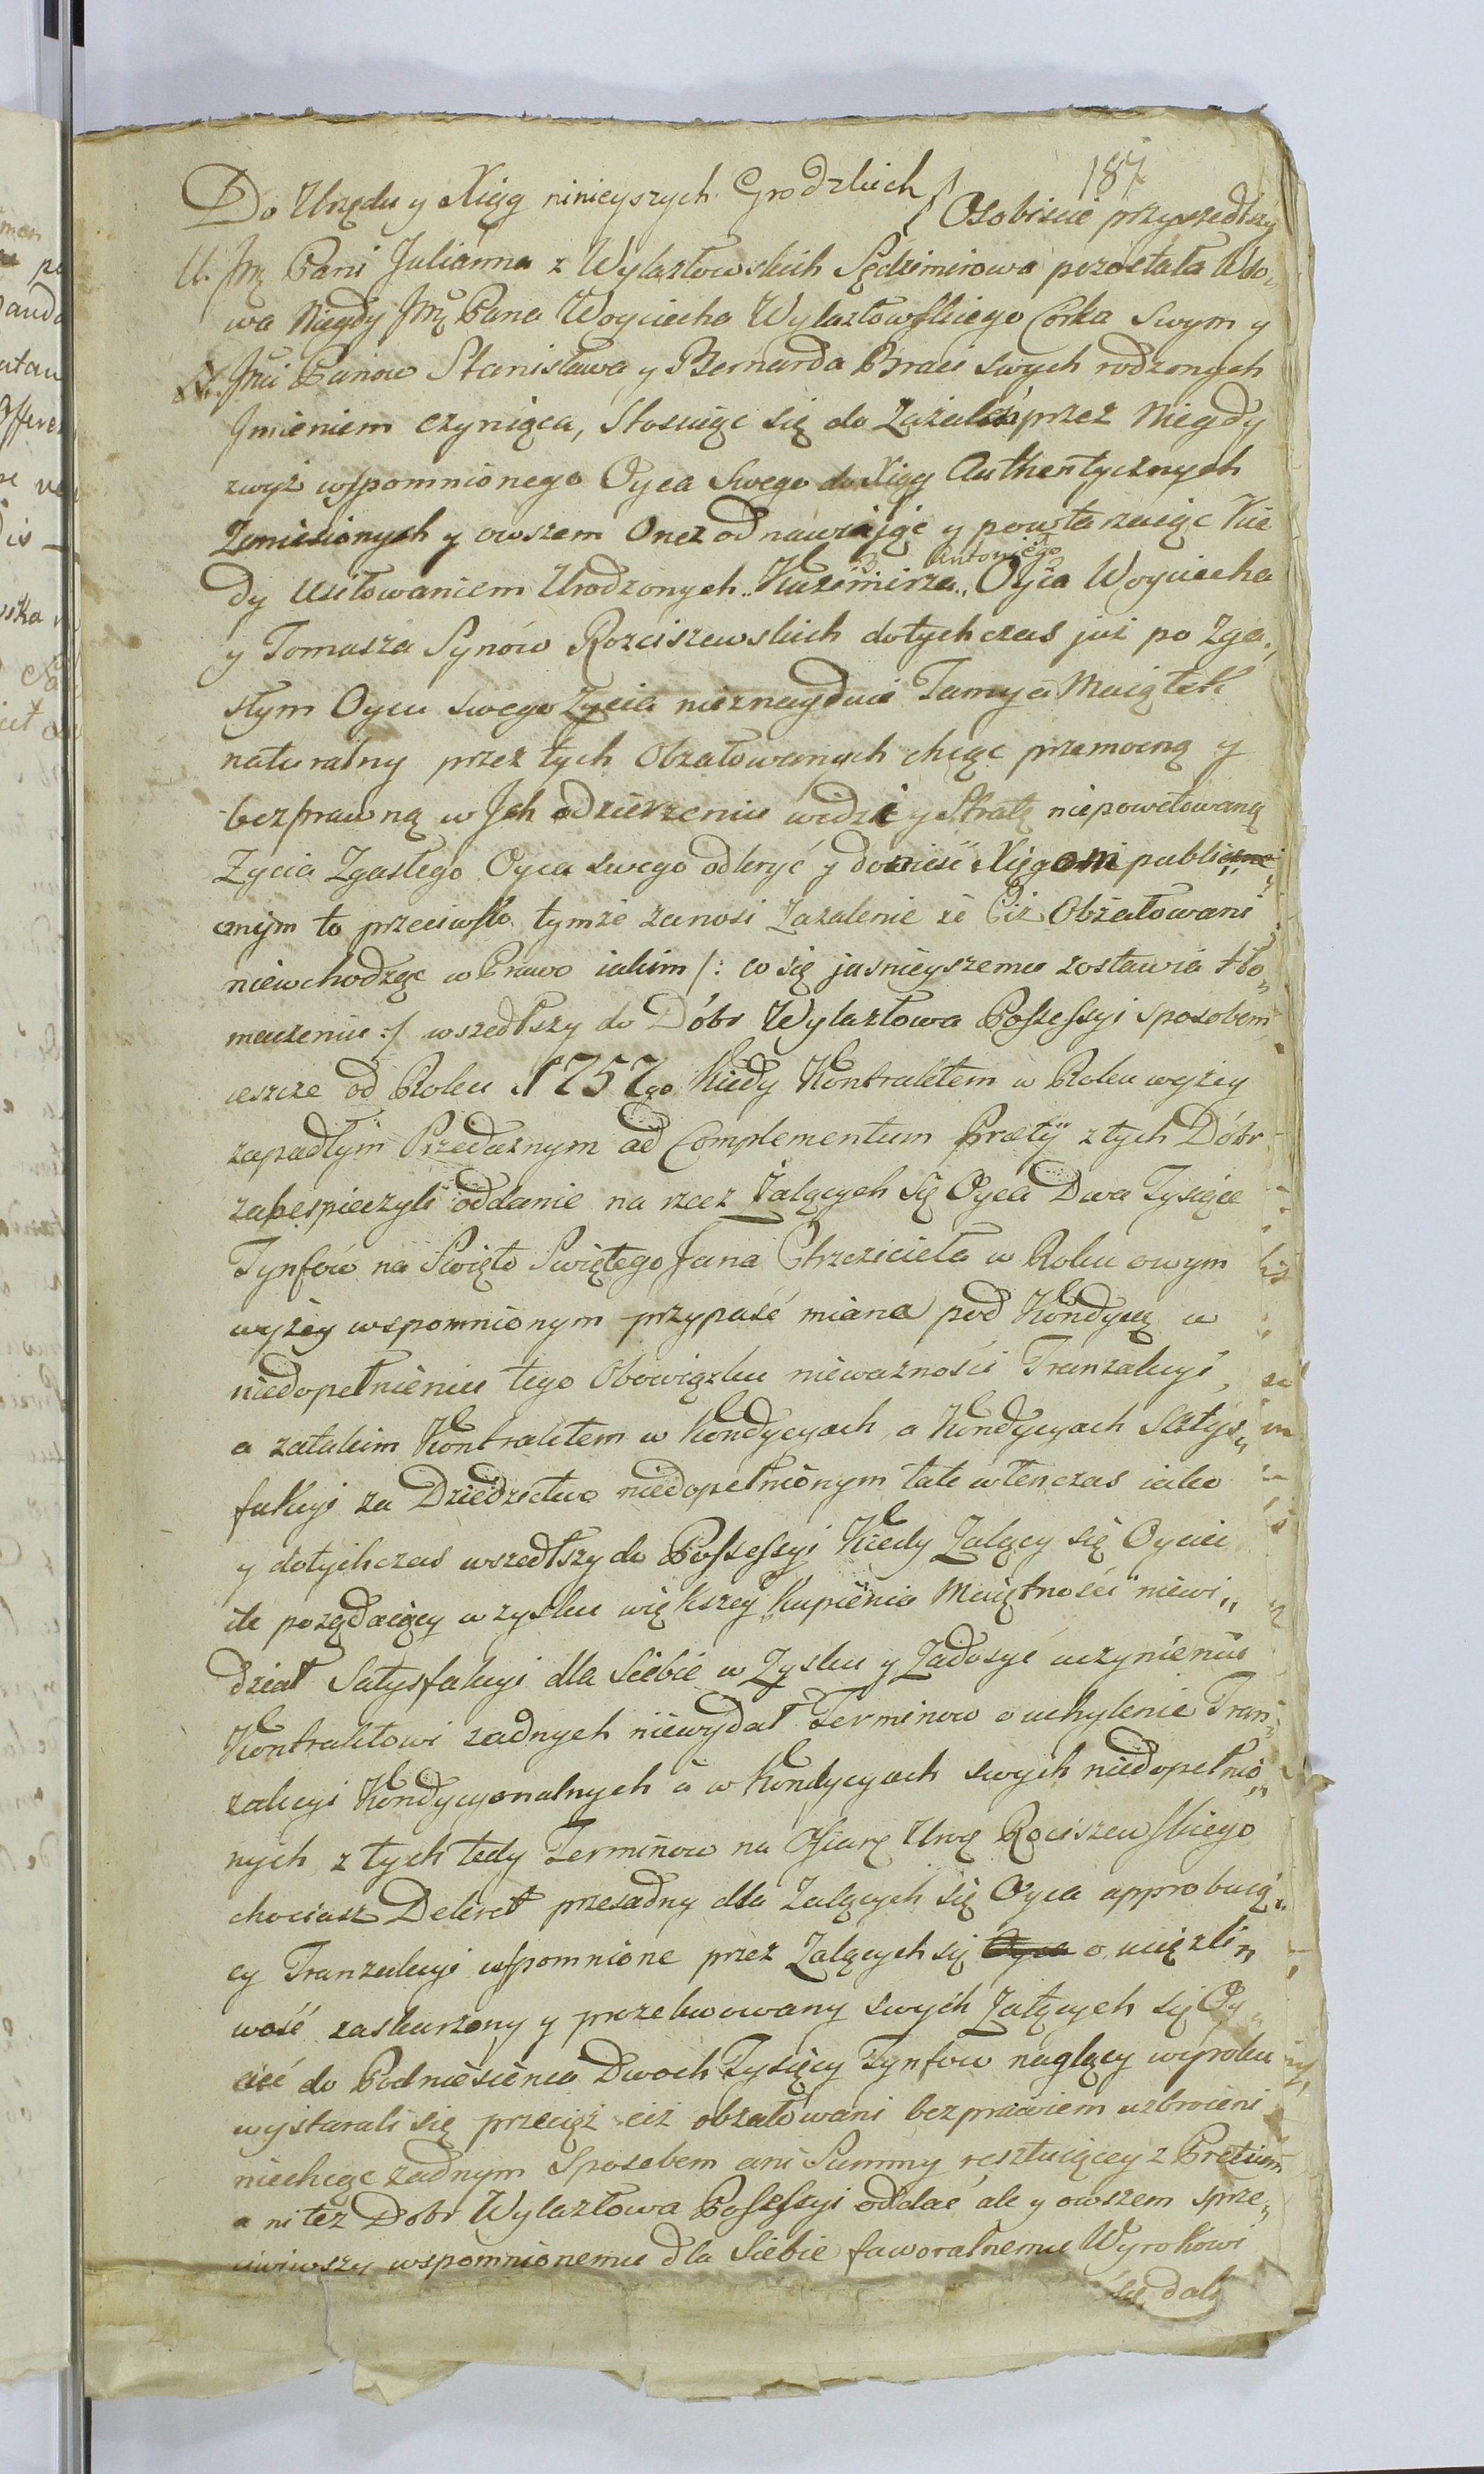 187
Do Urzędu y Xiąg ninieyszych Grodzkich Osobiscie przyszedłszy
U. Jmę Pani Julianna z Wylazłowskich Sędzimirowa pozostała Wdo„
wa Niegdy Jmę Pana Woyciecha Wylazłowskiego Corka swym y
Jmci Panow Stanisława y Bernarda Braci swych rodzonych
Jmieniem czyniąca, Stosuiąc się do Zażaleń przez Niegdy
zwyż wspomnionego Oyca Swego do Xiąg Authentycznych
Zaniesionych y owszem Onez odnawiając y powtarzaiąc Kie
dy Usiłowaniem Urodzonych „Kazimirza„ Antoniego Oyca Woyciecha
y Tomasza Synów Rozciszewskich dotychczas już po Zga„
słym Oycu swego Zycia nieznayduie Tamy a Maiątek
naturalny przez tych Obżałowanych chęć przemocną y
bezprawną w Jch odzierzeniu widzi y Stratę niepowetowaną
Zycia Zgasłego Oyca swego odkryć y donieść Xięgom public
cznym to przeciwko tymże zanosi Zażalenie iż Ciż Obżałowani
niewchodząc w Prawo iakim /: co się jasnieyszemu zostawia tło„
maczeniu :/ wszedłszy do Dóbr Wylazłowa Possessyi sposobem
ieszcze od Roku 1757go Kiedy Kontraktem w Roku wyżey
zapadłym Przedaznym ad Complementum Prætij z tych Dóbr
zabespieczyli oddanie na rzecz Żalących się Oyca Dwa Tysiące
Tynfów na Swięto Swiętego Jana Chrzciciela w Roku owym
wyżey wspomnionym przypaść miane pod Kondycyą w
niedopełnieniu tego Obowiązku nieważności Tranzakcyi,
a zatakim Kontraktem w Kondycyach, a Kondycyach Satys„
fakcyi za Dziedzictwo niedopełnionym tak wtenczas iako
y dotychczas wszedłszy do Possessyi Kiedy Żalący się Ociec
ile pożądaiący w zysku większey kupienia Maiętności niewi„
dział Satysfakcyi dla Siebie w Zysku y Zadosyć uczynieniu
Kontraktowi zadnych niewydał Terminow o uchylenie Tran„
zakcyi Kondycyonalnych a w Kondycyach swych niedopełnio„
nych z tych tedy Terminow na Ofiarę Urgo Rociszewskiego
chociasz Dekret przesadny dla Zalących się Oyca approbuią„
cy Tranzakcyi wspomnione przez Zalących się o uciązli„
wość zaskarzony y przekwowany swych Załących się Oy„
ciec do Podniesienia Dwoch Tysięcy Tynfow naglący wyroku
wystarali się przecięż ciż obżałowani bezprawiem uzbroieni
niechcąc żadnym Sposobem ani Summy resztuiącey z Pretium
ani też Dobr Wylazłowa Possessyi oddać ale y owszem sprze„
ciwiwszy wspomnionemu dla Siebie faworalnemu Wyrokowi
się dali